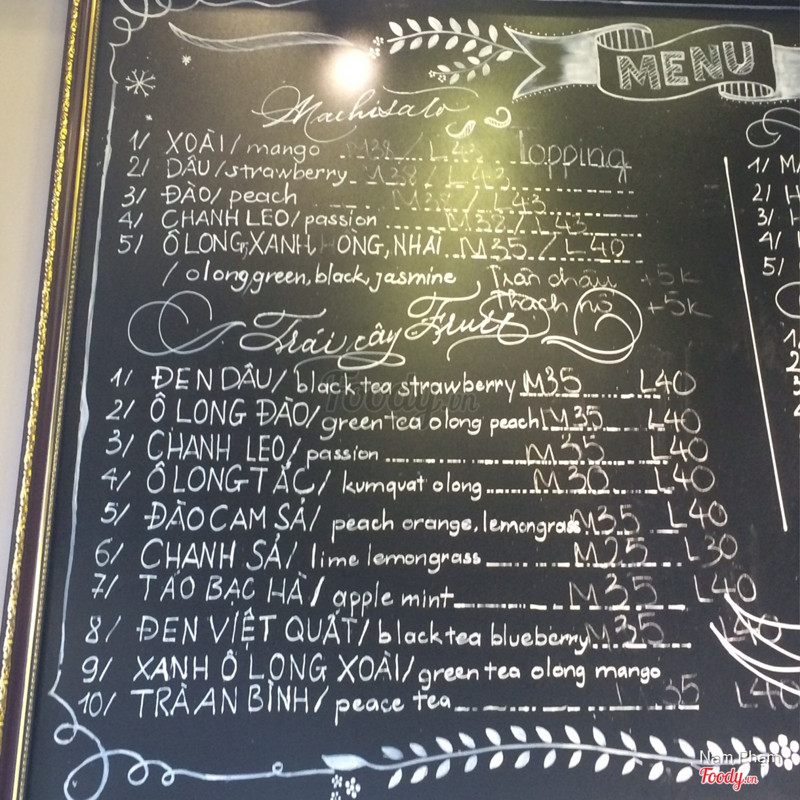 MENU
Machisato
1/ XOÀI / mango M38 / L43 Topping
2/ DÂU / strawberry M38 / L43
3/ ĐÀO / peach M38 / L43
4/ CHANH LEO / passion M38 / L43
5/ Ô LONG, XANH, HỒNG, NHÀI M35 / L40
/ olong, green, black, jasmine Trân châu +5k
Thạch +5k
Trái cây Fruit
1/ ĐEN DÂU / black tea strawberry M35 L40
2/ Ô LONG ĐÀO / green tea olong peach M35 L40
3/ CHANH LEO / passion M35 L40
4/ Ô LONG TẮC / kumquat olong M30 L40
5/ ĐÀO CAM SẢ / peach orange, lemongrass M35 L40
6/ CHANH SẢ / lime lemongrass M25 L30
7/ TÁO BẠC HÀ / apple mint M35 L40
8/ ĐEN VIỆT QUẤT / black tea blueberry M35 L40
9/ XANH Ô LONG XOÀI / green tea olong mango
10/ TRÀ AN BÌNH / peace tea M35 L40
1/ M
2/ H
3/ H
4/ L
5/ L
Foody.vn
Nam Pham
Foody.vn